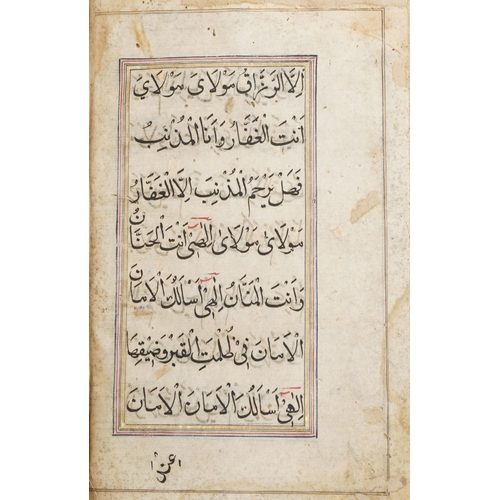 اِلَّا الرَّزَّاقُ مَوْلَايَ مَوْلَايَ
اَنْتَ الْغَفَّارُ وَاَنَا الْمُذْنِبُ
فَهَلْ يَرْحَمُ الْمُذْنِبَ اِلَّا الْغَفَّارُ
مَوْلَايَ مَوْلَايَ اِلٰهِي اَنْتَ الْحَنَّانُ
وَاَنْتَ الْمَنَّانُ اِلٰهِي اَسْأَلُكَ الْاَمَانَ
الْاَمَانَ فِي ظُلُمَتِ الْقَبْرِ وَضِيْقِهَا
اِلٰهِي اَسْأَلُكَ الْاَمَانَ الْاَمَانَ